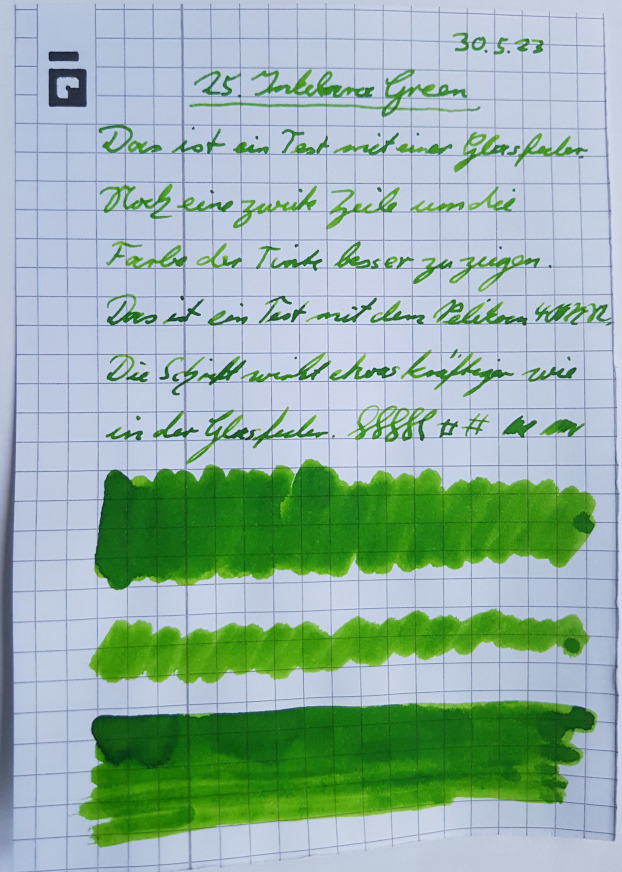 30.5.23
25. Inkebara Green
Das ist ein Test mit einer Glasfeder.
Noch eine zweite Zeile um die
Farbe der Tinte besser zu zeigen.
Das ist ein Test mit dem Pelikan
Die Schrift wirkt etwas kräftiger wie
in der Glasfeder. ##